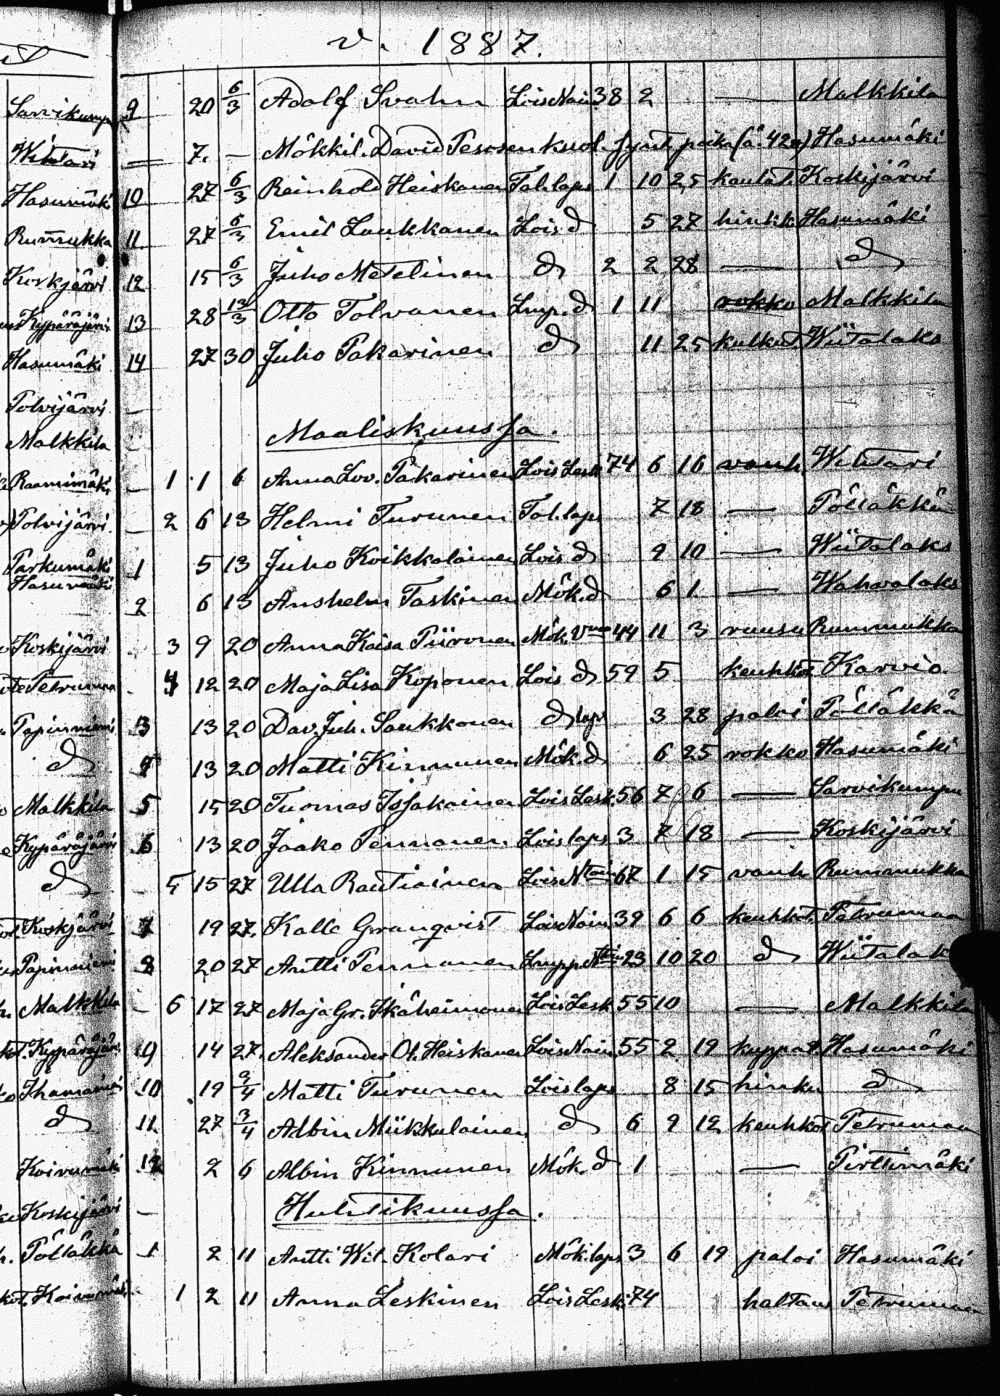 v. 1887.
Sarvikumpu 9 20 6/3 Adolf Svahn Lois Nain 38 2 — Malkkila
Wihtari — 7. — Mökkil. David Pesosen kuol. synt. poika Hasumäki
Hasumäki 10 27 6/3 Reinhold Heiskanen Tal. laps 1 10 25 Koskijärvi
Rummukka 11 27 6/3 Emil Laukkanen Lois d 5 27 hinkk Hasumäki
Koskijärvi 12 15 6/3 Juho Metelinen d 2 2 28 — d
Kypäräjärvi 13 28 13/3 Otto Tolvanen Lmp. d 1 11 rokko Malkkila
Hasumäki 14 27 30 Juho Pakarinen d 11 25 kulkut. Wiitalaks
Polvijärvi —
Malkkila — Maaliskuussa.
Raanimäki — 1 1 6 Anna Lov. Pakarinen Lois Lesk 74 6 16 vanh Wihtari
Polvijärvi. — 2 6 13 Helmi Turunen Tal. laps 7 18 — Pölläkkä
Parkumäki 1 5 13 Juho Koikkalainen Lois d 9 10 — Wiitalaks
Hasumäki
2 6 13 Anshelm Taskinen Mök. d 6 1 — Wahvalaks
Koskijärvi 3 9 20 Anna Kaisa Piironen Mök. 44 11 3 ruusu Rummukka
Petrumaa 4 12 20 Maja Lisa Koponen Lois d 59 5 keuhkot Karvio
Papinniemi 3 13 20 Dav. Juh. Laukkanen d laps 3 28 polvi Pölläkkä
d 4 13 20 Matti Kinnunen Mök. d 6 25 rokko Hasumäki
Malkkila 5 15 20 Tuomas Issakainen Lois Lesk. 56 7 6 — Sarvikumpu
Kypäräjärvi 6 13 20 Jaako Pennanen Lois laps 3 7 18 — Koskijärvi
d — 5 15 27 Ulla Rautiainen Lois 67 1 15 vanh Rummukka
Koskjärvi 7 19 27. Kalle Granqvist Lois Nain 39 6 6 keuhkot. Petrumaa
Papinniemi 8 20 27 Antti Pennanen 23 10 20 d Wiitalak
Malkkila — 6 17 27 Maja Gr. Ikäheimonen Lois Lesk 55 10 — Malkkila
Kypäräjär 9 14 27. Aleksander Ol. Heiskanen Lois Nain 55 2 19 Hasumäki
10 19 3/4 Matti Turunen Lois laps 8 15 hinku d
d 11 27 3/4 Albin Miikkulainen d 6 9 12 keuhkot Petrumaa
Koivumäki 12 2 6 Albin Kinnunen Mök. d 1 — Pirttimäki
Koskijärvi — Huhtikuussa.
Pölläkkä 1 2 11 Antti Wil. Kolari Mök. laps 3 6 19 paloi Hasumäki
Koivumäki 1 2 11 Anna Leskinen Lois Lesk 74 Petrumaa